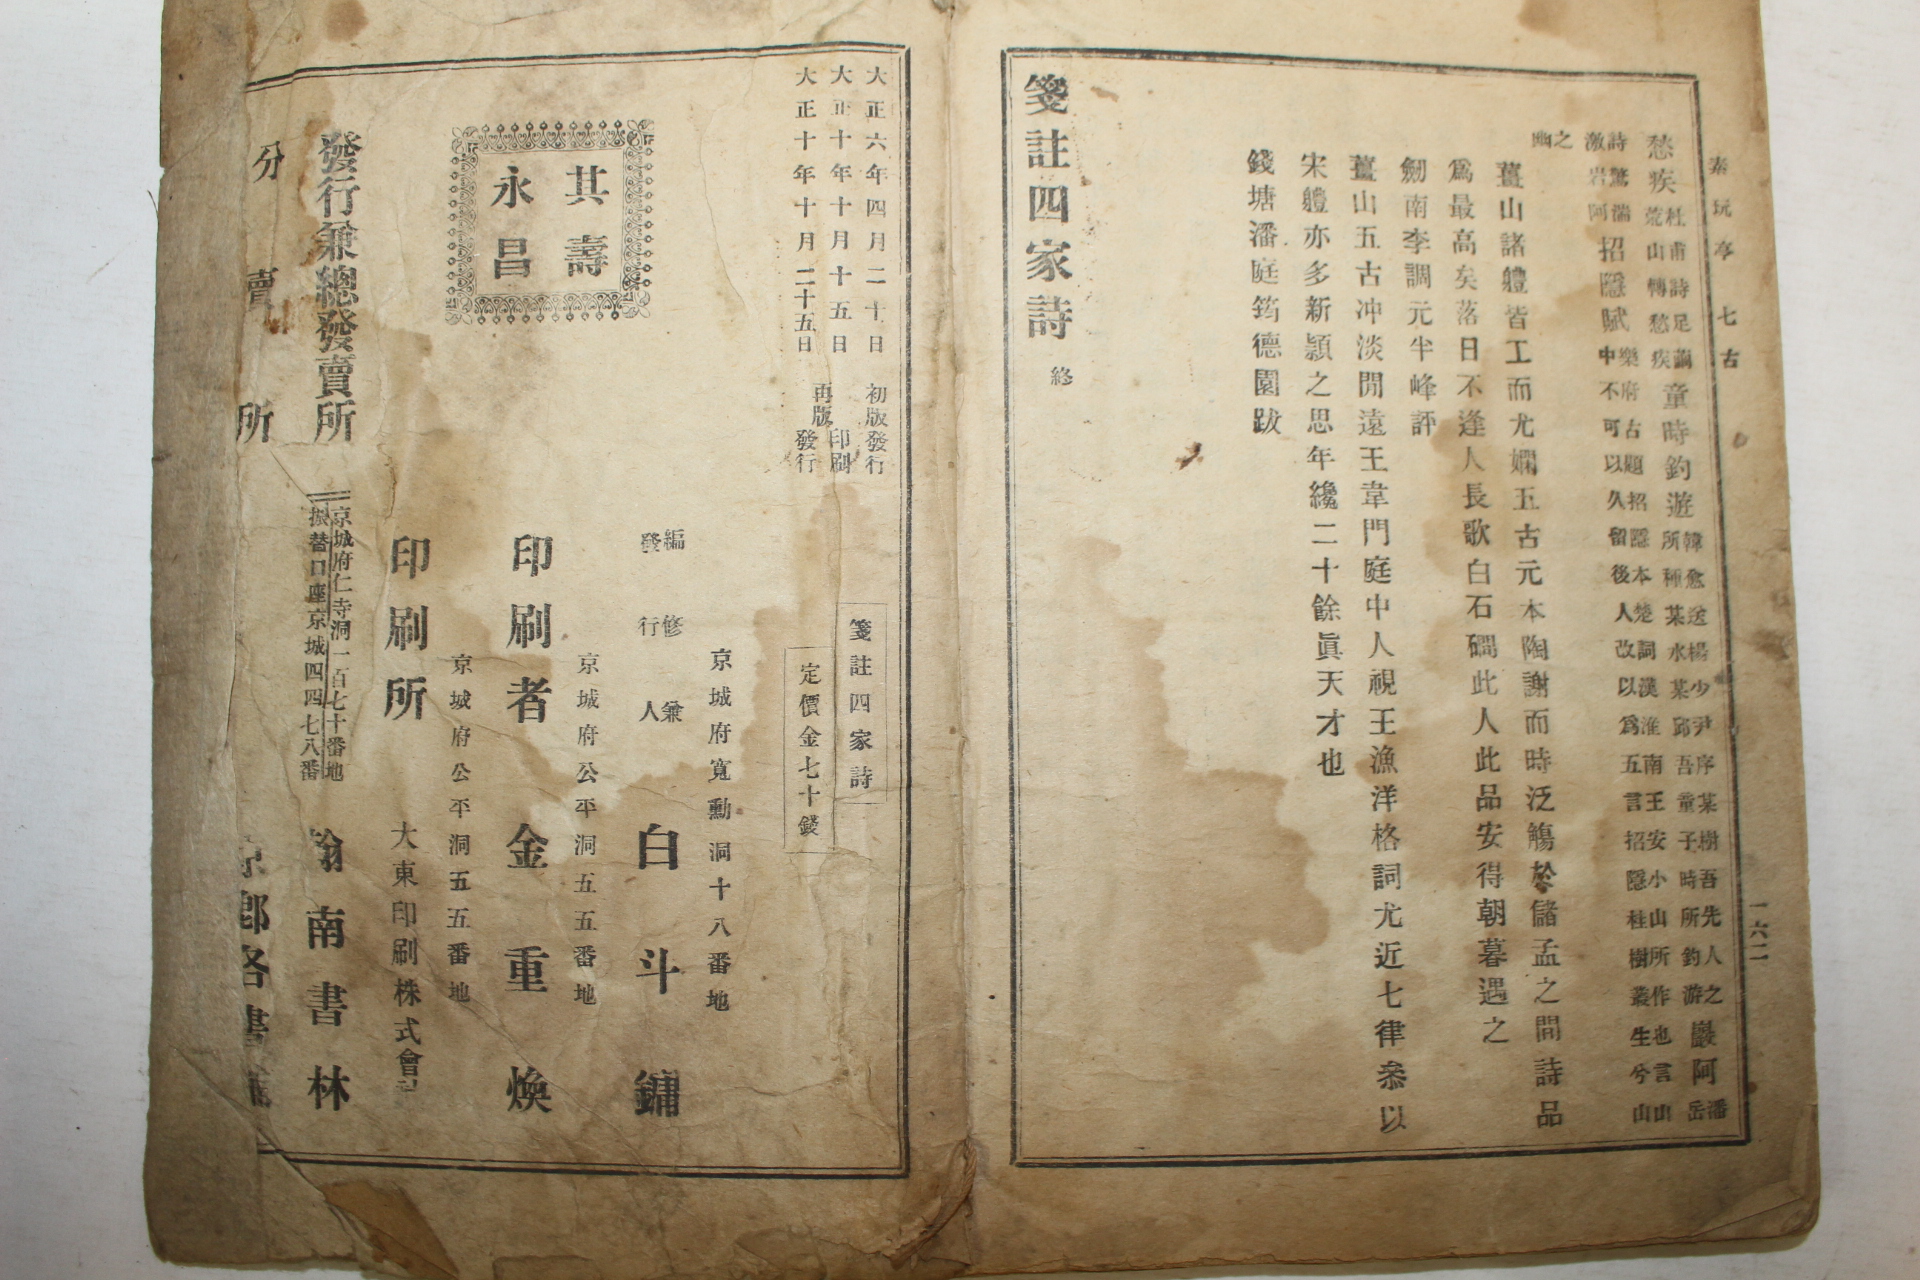 素玩亭 七古 一六二
愁疾 杜甫詩足繭荒山轉愁疾 童時釣遊 韓愈送楊少尹序某樹吾先人之所種某水某邱吾童子時所釣游 巖阿 潘岳
詩驚湍激岩阿 招隱賦 樂府古題招隱本楚詞漢淮南王安小山所作也言山中不可以久留後人改以爲五言招隱桂樹叢生兮山
之幽
薑山諸軆皆工而尤嫻五古元本陶謝而時泛觴於儲孟之間詩品
爲最高矣落日不逢人長歌白石磵此人此品安得朝暮遇之
劒南李調元半峰評
薑山五古冲淡閒遠王韋門庭中人視王漁洋格詞尤近七律叅以
宋軆亦多新穎之思年纔二十餘眞天才也
錢塘潘庭筠德園跋
箋註四家詩 終
大正六年四月二十日 初版發行
大正十年十月十五日 印刷
再版
大正十年十月二十五日 發行
箋註四家詩
定價金七十錢
其壽
永昌
京城府寬勳洞十八番地
編修兼
發行人 白斗鏞
京城府公平洞五五番地
印刷者 金重煥
京城府公平洞五五番地
印刷所 大東印刷株式會社
發行兼總發賣所
京城府仁寺洞一百七十番地
振替口座京城四四七八番
翰南書林
分賣所